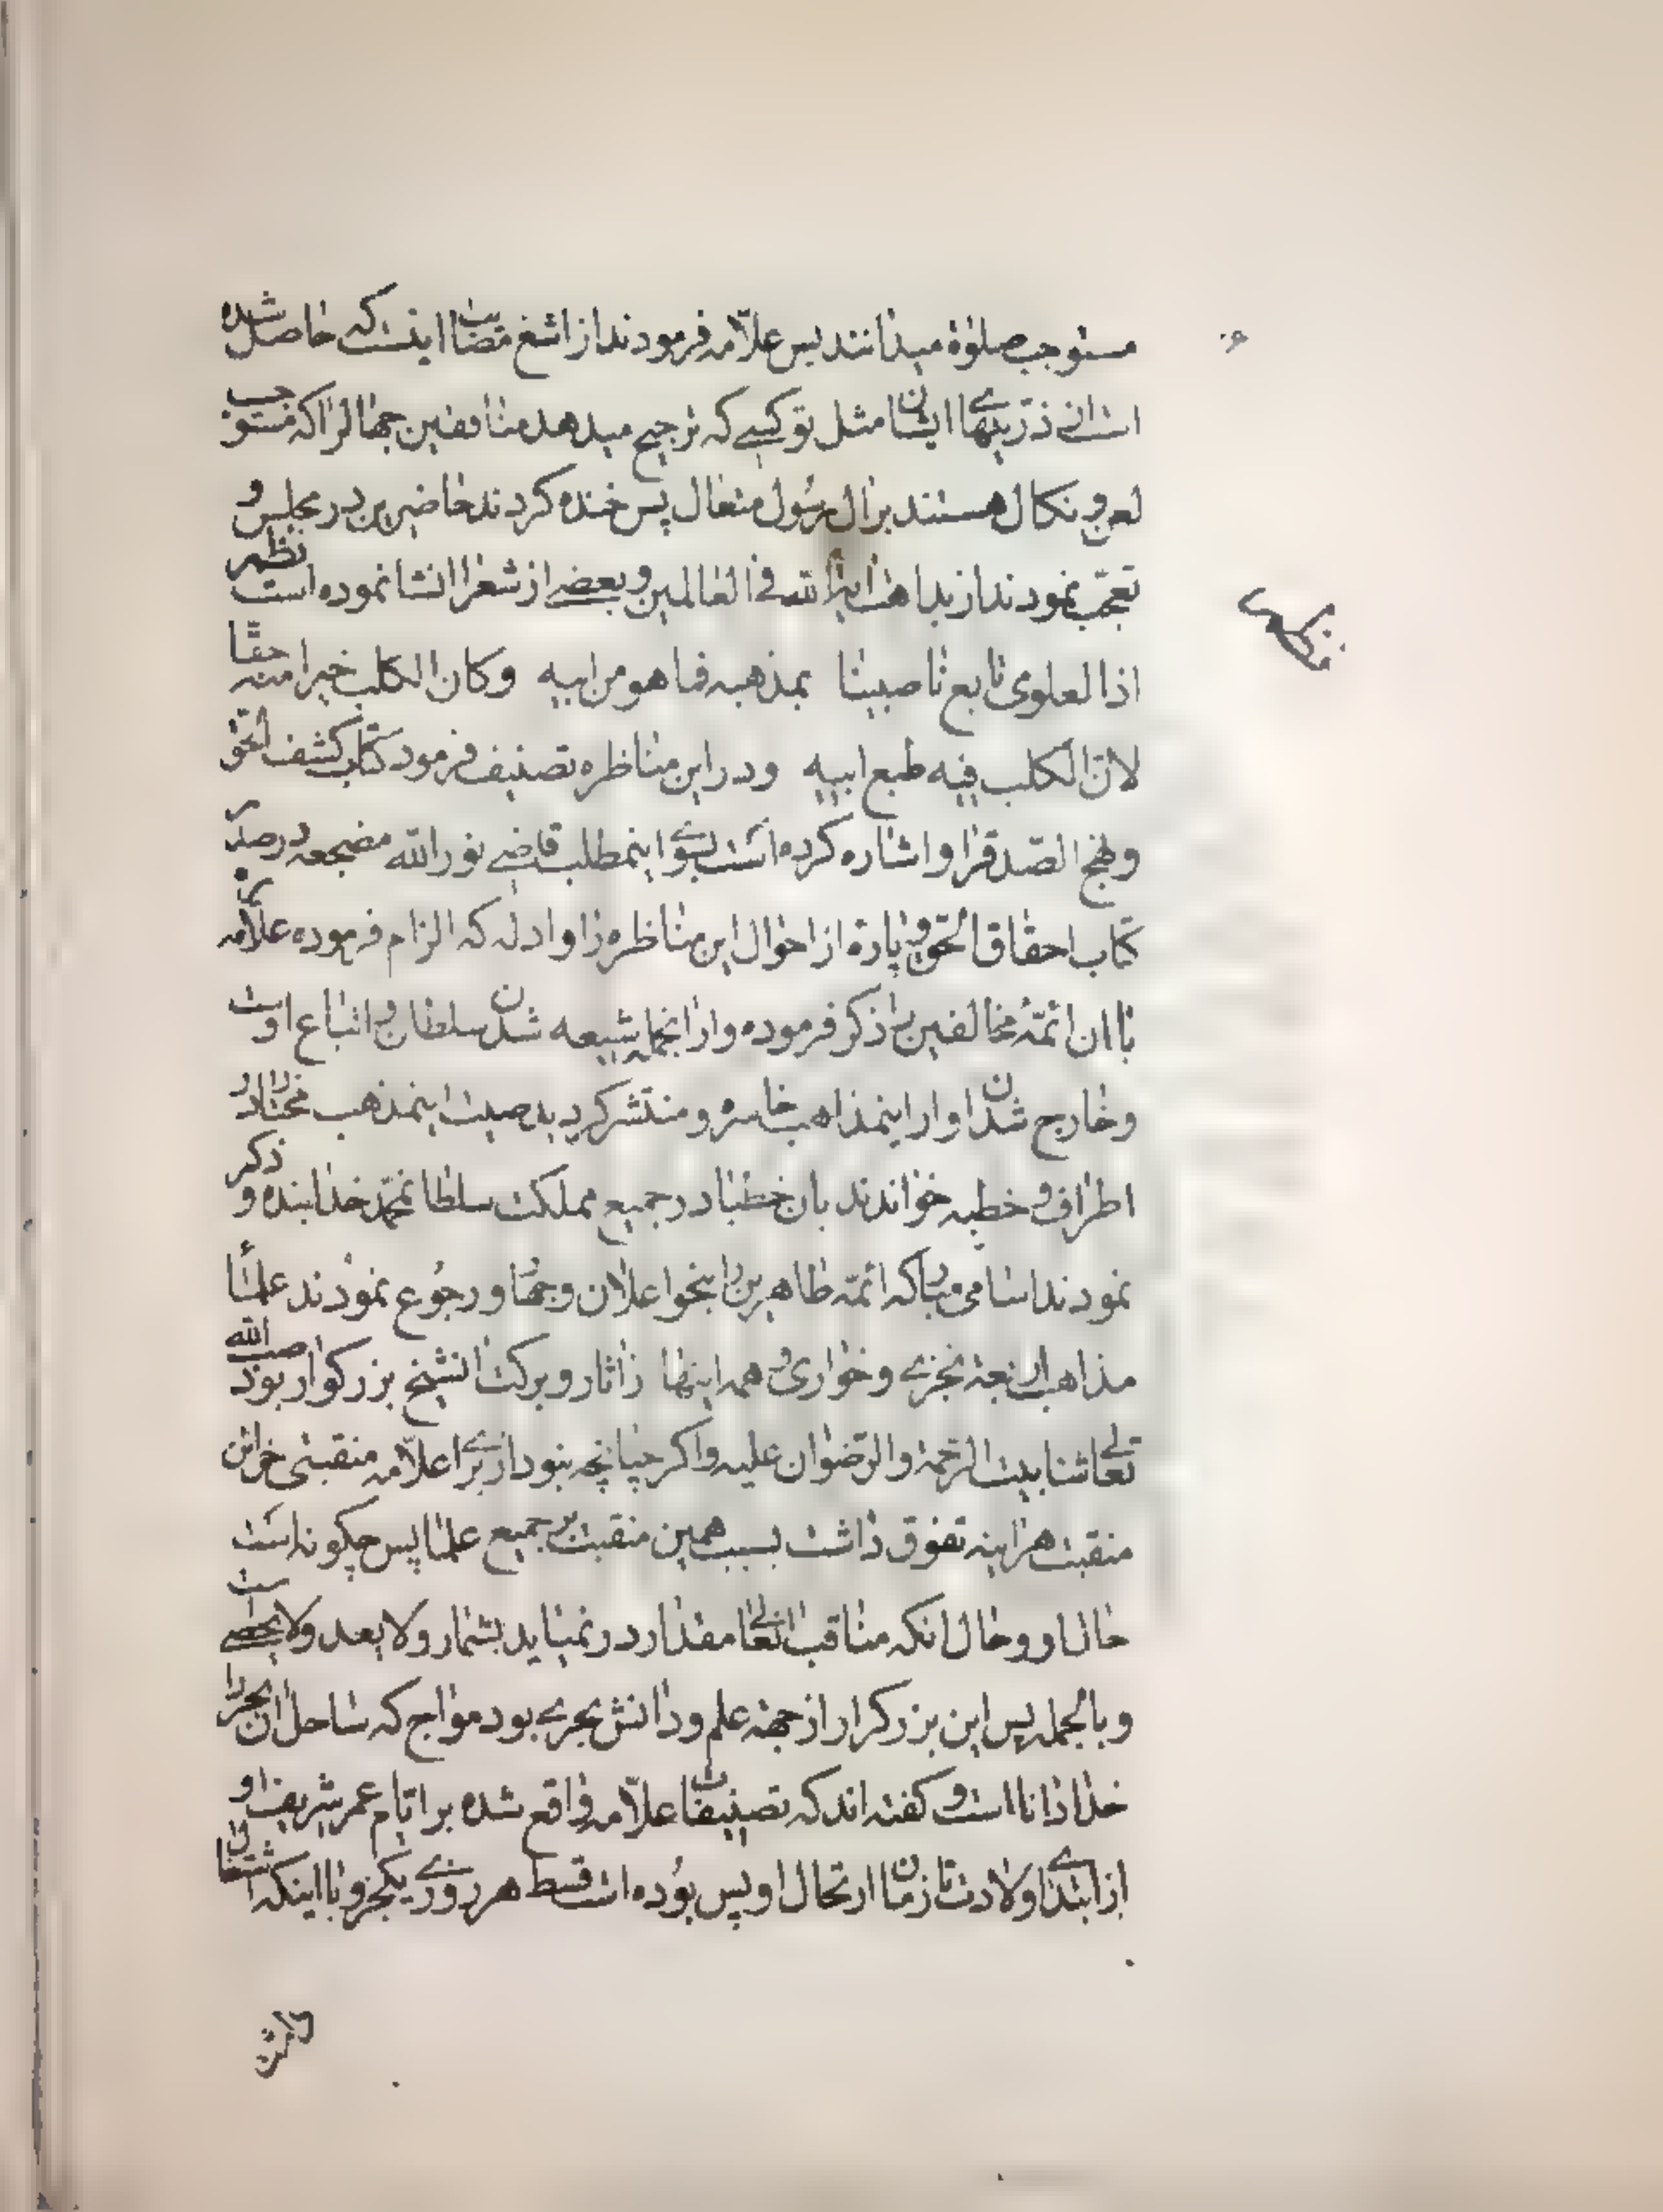 مستوجب صلوة میدانند پس علامه فرمودند از اشنع مصائب اینست که حاصل شده
است از ذریتهای ایشان مثل تو کسی که ترجیح میدهد منافقین جهال را که مستوجب
لعن و نکال هستند بر ال رسول متعال پس خنده کردند حاضرین در مجلس و
تعجب نمودند از بداهت ایة الله فی العالمین و بعضی از شعرا انشا نموده است نظم
اذا العلوی تابع ناصبیتا بمذهبه فما هو من ابیه وکان الکلب خیرا منه حقا
لان الکلب فیه طبع ابیه ودر این مناظره تصنیف فرمود کتاب کشف الحق
و نهج الصدق را و اشاره کرده است بسوی اینمطلب قاضی نور الله مضجعه در صدر
کتاب احقاق الحق و پارۀ از احوال این مناظره را و ادله که الزام فرموده علامه
با ان ائمۀ مخالفین را ذکر فرموده و از انجمله شیعه شدن سلطان و اتباع اوست
و خارج شدن او از اینمذاهب خاسره و منتشر گردید صیت اینمذهب مختار در
اطراف و خطبه خواندند بان خطبا در جمیع مملکت سلطان محمد خدابنده و ذکر
نمودند اسامی مبارکه ائمه طاهرین را بنحو اعلان و جهار و رجوع نمودند علماء
مذاهب اربعه بخزی و خواری و همه اینها از اثار و برکت انشیخ بزرکوار بود صب الله
تعالی شنابیت الرحمة والرضوان علیه و اکر چنانچه نبود از برای علامه منقبتی جز این
منقبت هراینه تفوق داشت بسبب همین منقبت بر جمیع علما پس چکونه است
حال او و حال انکه مناقب انعالی مقدار در نمیاید بشمار و لا یعد و لا یحصی است
و بالجمله پس این بزرکرار از جهة علم و دانش بحری بود مواج که ساحل ان بحر را
خدا داناست و کفته اند که تصنیفات علامه واقع شده بر ایام عمر شریف او
از ابتدای ولادت تا زمان ارتحال او پس بوده است قسط هر روزی یکجزو با اینکه